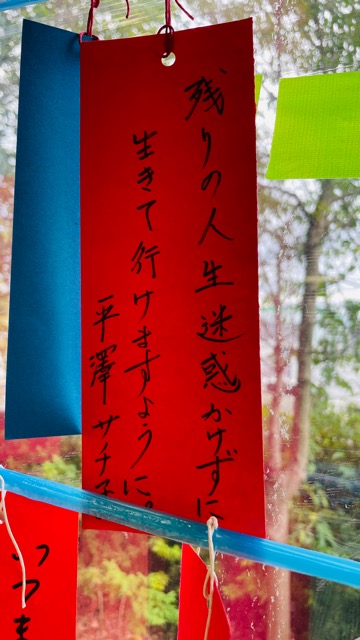 残りの人生迷惑かけずに
生きて行けますように。
平澤サチ子
いつま